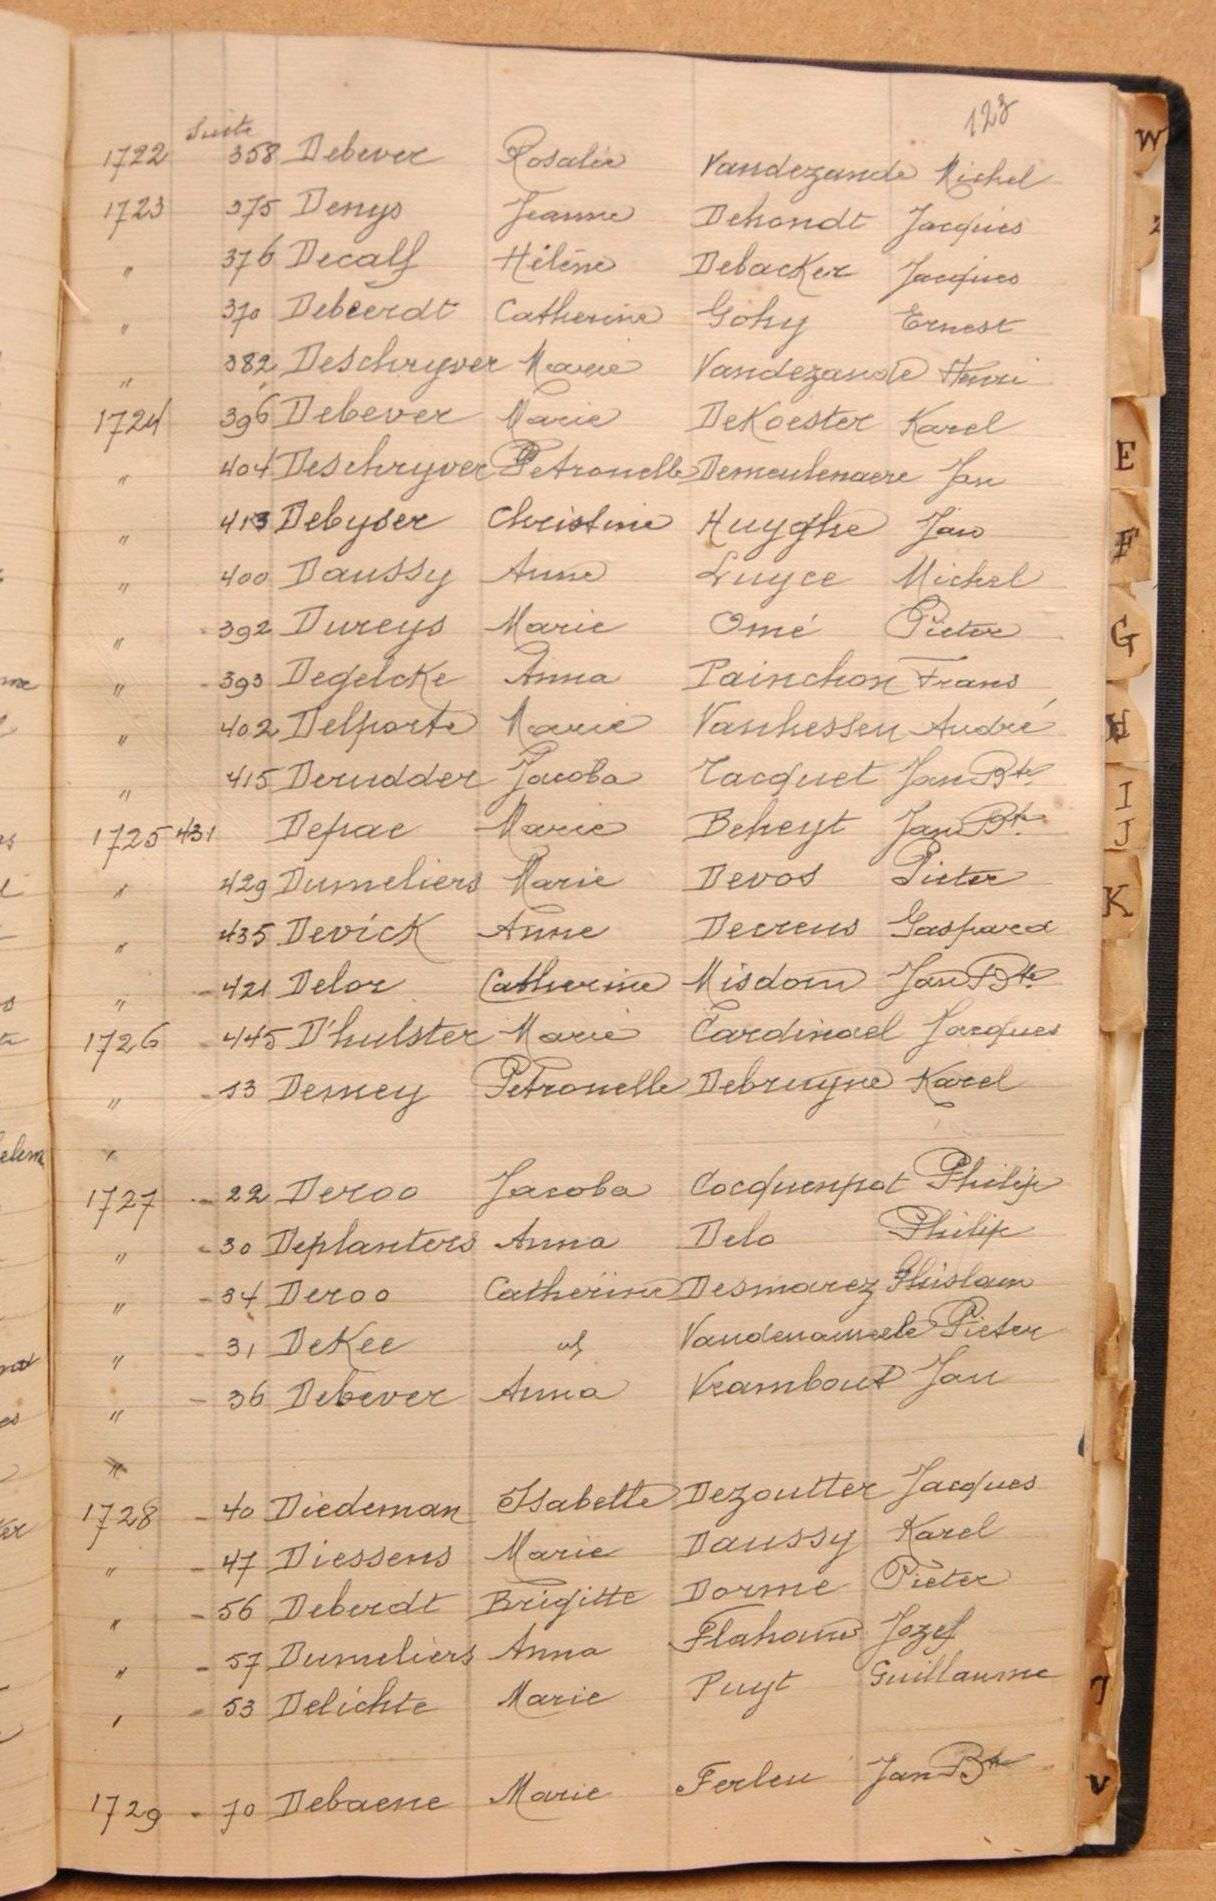 123
Suite
1722 358 Debever Rosalie Vandezande Michel
1723 375 Denys Jeanne Dehondt Jacques
" 376 Decalf Hélène Debacker Jacques
" 370 Debeerdt Catherine Gohy Ernest
" 382 Deschryver Marie Vandezande Henri
1724 396 Debever Marie DeKoester Karel
" 404 Deschryver Petronelle Demeulenaere Jan
" 413 Debyser Christine Huyghe Jan
" 400 Daussy Anne Luyce Michel
" 392 Dureys Marie Omé Pieter
" 393 Degelcke Anna Painchon Frans
" 402 Delporte Marie Vanhessen André
" 415 Derudder Jacoba Tacquet Jan Bte
1725 431 Depae Marie Beheyt Jan Bte
" 429 Dumeliers Marie Devos Pieter
" 435 Devick Anne Decreus Gaspard
" 421 Delor Catherine Misdom Jan Bte
1726 445 D'hulster Marie Cardinael Jacques
" 13 Demey Petronelle Debruyne Karel
"
1727 22 Deroo Jacoba Cocquenpot Philip
" 30 Deplanters Anna Delo Philip
" 34 Deroo Catherine Desmarez Ghislain
" 31 DeKee Pieter
" 36 Debever Anna Vrambout Jan
"
1728 40 Diedeman Isabelle Dezoutter Jacques
" 47 Diessens Marie Daussy Karel
" 56 Deberdt Brigitte Dorme Pieter
" 57 Dumeliers Anna Jozef
" 53 Delichte Marie Puyt Guillaume
1729 70 Debaene Marie Ferleu Jan Bte
W
Z
E
F
G
H
I
J
K
V